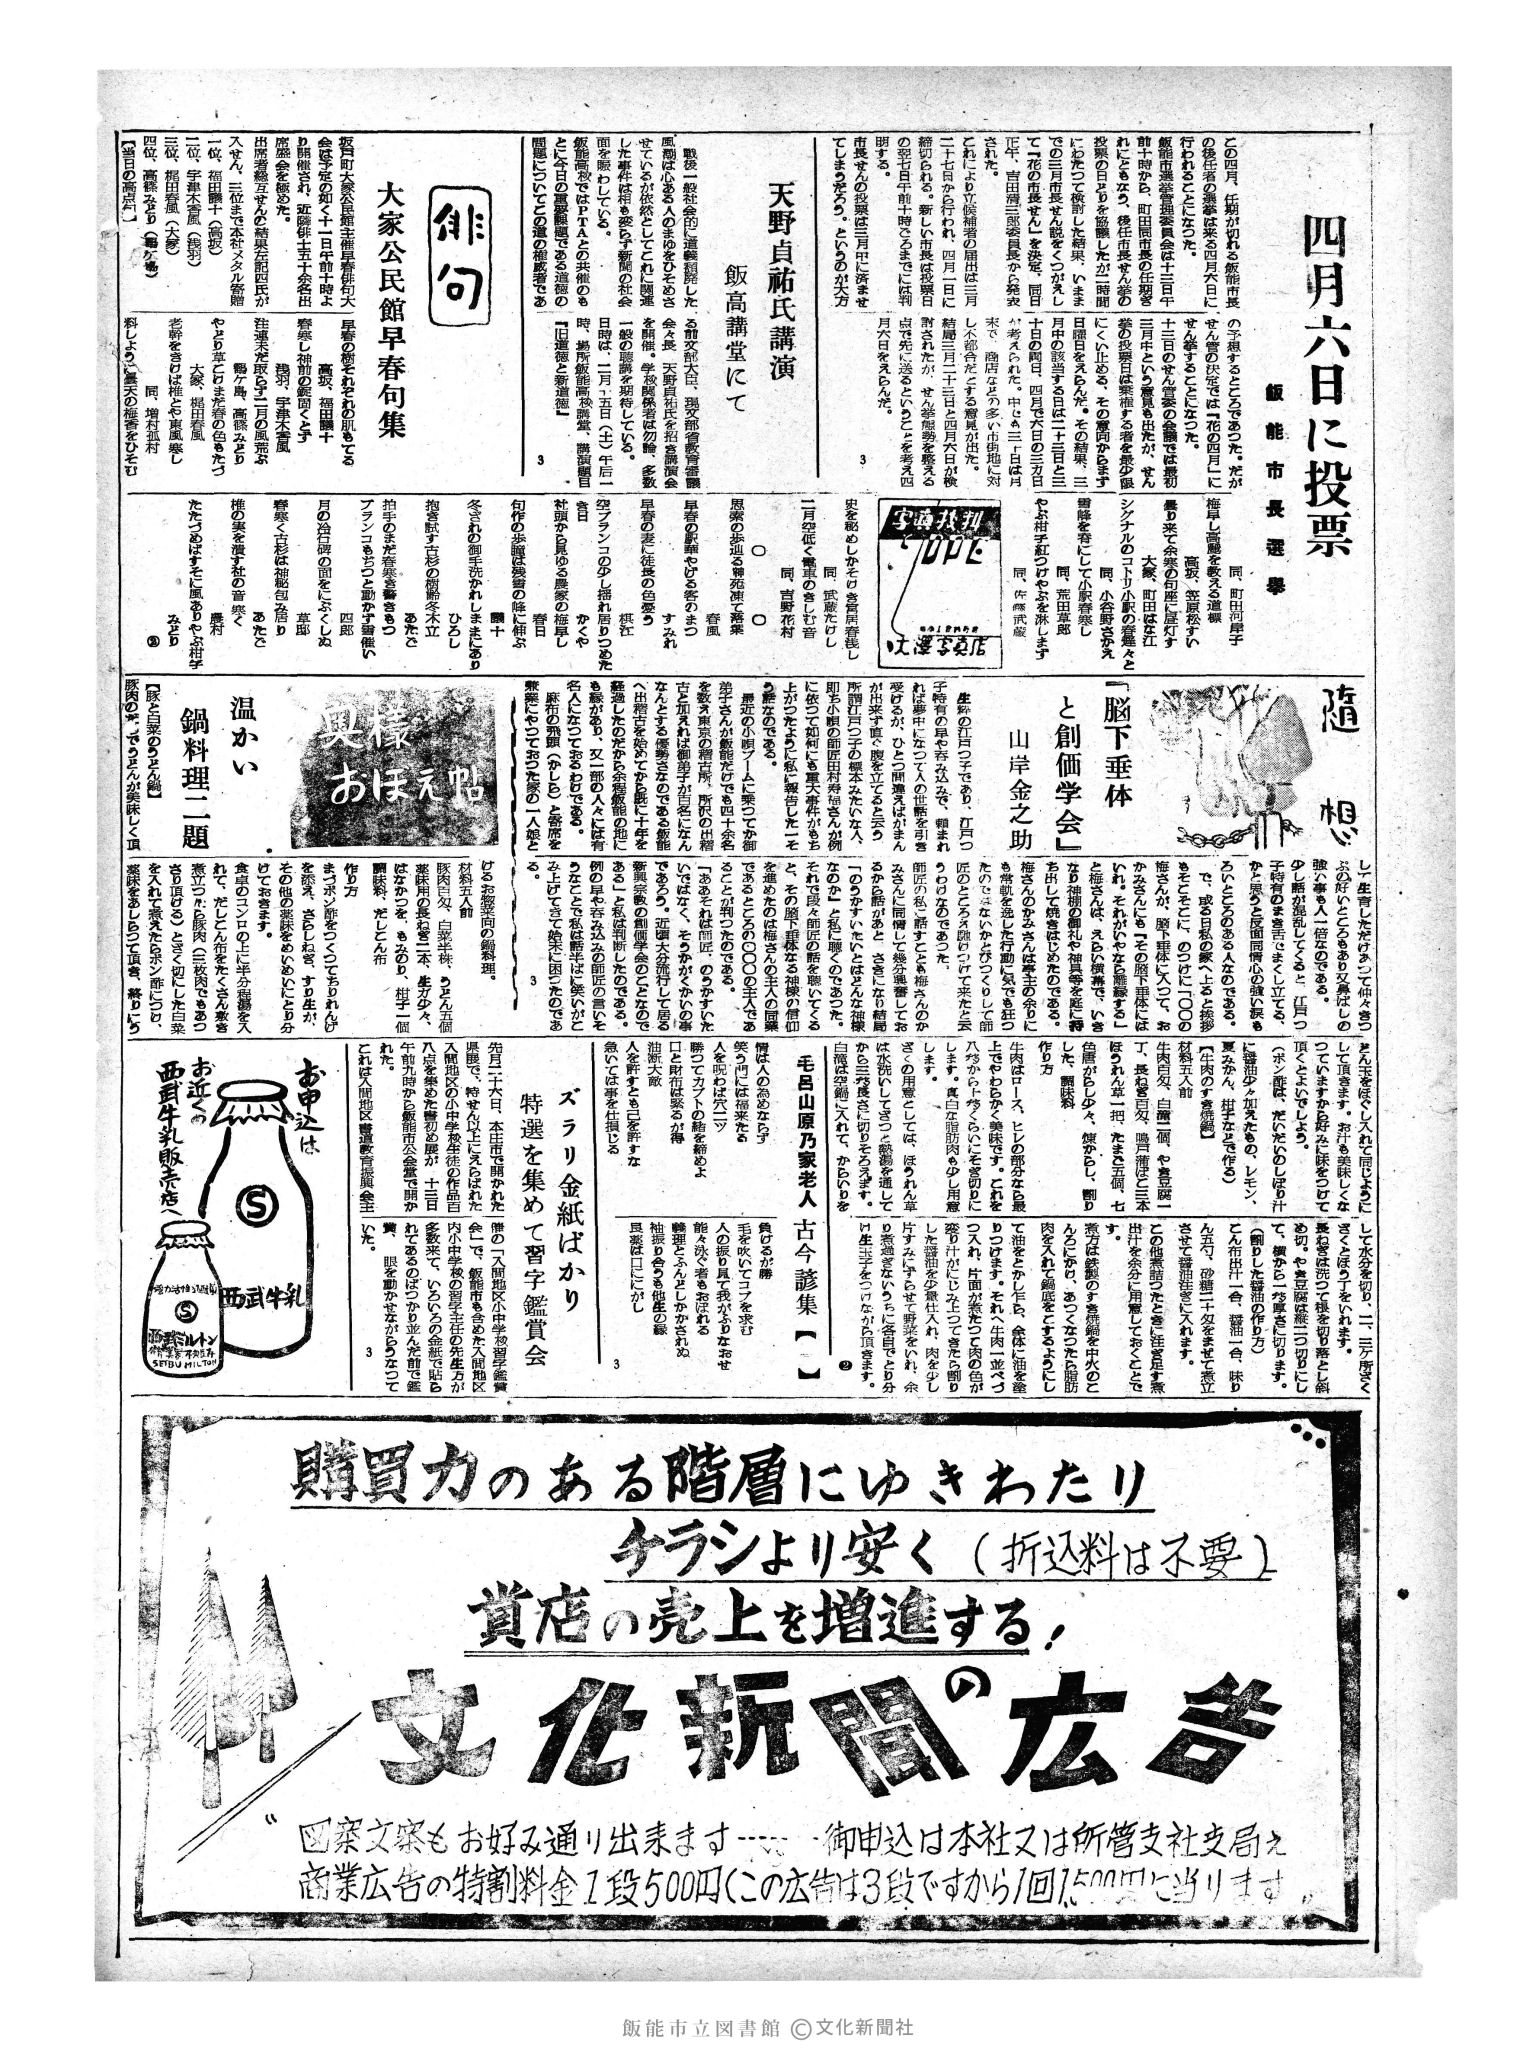 四月六日に投票
飯能市長選挙
この四月、任期が切れる飯能市長
の後任者の選挙は来る四月六日に
行われることになつた。
飯能市選挙管理委員会は十三日午
前十時から、町田同市長の任期ぎ
れにともなう、後任市長せん挙の
投票の日どりを協議したが二時間
にわたつて検討した結果、いまま
での三月市長せん説をくつがえし
て『花の市長せん』を決定、同日
正午、吉田清三郎委員長から発表
された。
これにより立候補者の届出は三月
二十七日から行われ、四月一日に
締切られる。新しい市長は投票日
の翌七日午前十時ごろまでには判
明する。
市長せんの投票は三月中に済ませ
てしまうだろう。というのが大方
の予想するところであつた。だが
せん管の決定では『花の四月』に
せん挙することになつた。
十三日のせん管委の会議では最初
三月中という意見も出たが、せん
挙の投票日は棄権する者を最少限
にくい止める、その意向からまず
日曜日をえらんだ。その結果、三
月中の該当する日は二十三日と三
十日の両日、四月で六日の三カ日
が考えられた。中でも三十日は月
末で、商店などの多い市街地に対
し不都合だとする意見が出た。
結局三月二十三日と四月六日が検
討されたが、せん挙態勢を整える
点で先に送るということを考え四
月六日をえらんだ。
天野貞祐氏講演
飯高講堂にて
戦後一般社会的に道義頽廃した
風潮は心ある人のまゆをひそめさ
せているが依然としてこれに関連
した事件は相も変らず新聞の社会
面を賑わしている。
飯能高校ではPTAとの共催のも
とに今日の重要課題である道徳の
問題についてどの道の権威者であ
る前文部大臣、現文部省教育審議
会々長、天野貞祐氏を招き講演会
を開催。学校関係者は勿論、多数
一般の聴講を期待している。
日時は、二月十五日（土）午后一
時、場所飯能高校講堂、講演題目
『旧道徳と新道徳』
俳句
大家公民館早春句集
坂戸町大家公民館主催早春俳句大
会は予定の如く十一日午前十時よ
り開催され、近隣俳士五十余名出
席盛会を極めた。
出席者総互せんの結果左記四氏が
入せん、三位まで本社メタル寄贈
一位、福田議十（高坂）
二位、宇津木香風（浅羽）
三位、梶田春風（大家）
四位、高篠みどり（鶴ケ島）
【当日の高点句】
早春の樹それぞれの肌もてる
高坂、福田議十
春寒し神前の錠固くとず
浅羽、宇津木香風
注連未だ取らず二月の風荒ぶ
鶴ケ島、高篠みどり
やどり草こけまだ春の色もたづ
大家、梶田春風
老幹をきけば椎とや東風寒し
同、増村孤村
料しように曇天の梅香をひそむ
同、町田河岸子
梅早し高麗を教える道標
高坂、笠原松すい
曇り来て余寒の句座に昼灯す
大家、町田はな江
シグナルのコトリ小駅の春燈々と
同、小谷野さかえ
雪降を春にして小駅春寒し
同、荒田草郎
やぶ柑子紅つけやぶを淋します
同、佐藤武蔵
史を秘めしかそけき宮居春浅し
同、武蔵たけし
二月空低く電車のきしむ音
同、吉野花村
○　○
思索の歩辿る御苑凍て落葉
春風
早春の駅華やげる客のまつ
すみれ
早春の妻に徒長の色憂う
棋江
空ブランコの少し揺れ居りつめた
き日
かくや
社頭から見ゆる農家の梅早し
春日
句作の歩瞳は残雪の峰に伸ぶ
議十
冬されの御手洗かれしままにあり
ひろし
抱き試す古杉の樹齢冬木立
あたご
拍手のまだ春寒き響きもつ
ブランコもちつと動かず雪催い
四郎
月の冷石碑の面をにぶくしぬ
草邸
春寒く古杉は神秘包み居り
あたご
椎の実を潰す社の音寒く
農村
たたづめばすそに風ありやぶ柑子
みどり
隨想
「脳下垂体
と創価学会」
山岸金之助
生粋の江戸つ子であり、江戸つ
子特有の早や呑み込みで、頼まれ
れば夢中になつて人の世話を引き
受けるが、ひとつ間違えばがまん
が出来ず直ぐ腹を立てると云う
所謂江戸つ子の標本みたいな人、
即ち小唄の師匠田村寿福さんが例
に依つて如何にも重大事件がもち
上がつたように私に報告した一そ
う話なのである。
最近の小唄ブームに乗つてか御
弟子さんが飯能だけでも四十余名
を数え東京の稽古所、所沢の出稽
古と加えれば御弟子が百名になん
なんとする優勢さなのである飯能
へ出稽古を始めてから既に十年を
経過したのだから余程飯能の地に
も縁があり、又一部の人々には有
名人になつておるわけである。
麻布の飛頭（かしら）と寄席を
兼業にやつておつた家の一人娘と
して生育しただけあつて仲々きつ
ぷの好いところもあり又鼻ばしの
強い事も人一倍なのである。
少し話が混乱してくると、江戸つ
子特有のまき舌でまくし立てる、
かと思うと反面同情心の強い涙も
ろいところのある人なのである。
で、或る日私の家へ上ると挨拶
もそこそこに、のつけに「○○の
梅さんが、脳下垂体に入つて、お
かみさんにも『その脳下垂体には
いれ。それがいやなら離縁する』
と梅さんは、えらい権幕で、いき
なり神棚の御札や神具等を庭に持
ち出して焼きはじめたのである。
梅さんのかみさんは亭主の余りに
も常軌を逸した行動に気でも狂つ
たのではないかとびつくりして師
匠のところえ駆けつけて来たと云
うわけなのであつた。
師匠の私に話すことも梅さんのか
みさんに同情して幾分興奮してお
るから話があと、さきになり結局
「のうかすいたいとはどんな神様
なのか」と私に聴くのであつた。
それで段々師匠の話を聴いてくる
と、その脳下垂体なる神様の信仰
を進めたのは梅さんの主人の同業
であるところの○○○の主人であ
ることが判つたのである。
「ああそれは師匠、のうかすいた
いではなく、そうかがくかいの事
であろう。近頃大分流行して居る
新興宗教の創価学会のことなので
ある」と私は判断したのである。
例の早や呑み込みの師匠の言いそ
うなことで私は話半ばに笑いがこ
み上げてきて始末に困つたのであ
る。
奥様おぼえ帖
温かい
鍋料理二題
【豚と白菜のうどん鍋】
豚肉のだしでうどんが美味しく頂
けるお惣菜向の鍋料理。
材料五人前
豚肉百匁、白菜半株、うどん五個
薬味用の長ねぎ二本、生が少々、
はなかつを、もみのり、柑子一個
調味料、だしこん布
作り方
まづポン酢をつくつてちりれんげ
を添え、さらしねぎ、すり生が、
その他の薬味をめいめいにとり分
けておきます。
食卓のコンロの上に半分程湯を入
れて、だしこん布をたくさん敷き
煮立つたら豚肉（三枚肉でもあつ
さり頂ける）とざく切にした白菜
を入れて煮えたらポン酢につけ、
薬味をあしらつて頂き、終りにう
どん玉をほぐし入れて同じように
して頂きます。お汁も美味しくな
つていますから好みに味をつけて
頂くとよいでしよう。
（ポン酢は、だいだいのしぼり汁
に醤油少々加えたもの、レモン、
夏みかん、柑子などで作る）
【牛肉のすき焼鍋】
材料五人前
牛肉百匁、白滝二個、やき豆腐一
丁、長ねぎ百匁、鳴戸蒲ぼこ三本
ほうれん草一把、たまご五個、七
色唐がらし少々、煉からし、割り
した、調味料
作り方
牛肉はロース、ヒレの部分なら最
上でやわらかく美味です。これを
八㍉から十㍉くらいにそぎ切りに
します。真白な脂肪肉も少し用意
します。
ざくの用意としては、ほうれん草
は水洗いしてさつと熱湯を通して
から三㌢長さに切りそろえます。
白滝は空鍋に入れて、からいりを
して水分を切り、一、三ケ所ざく
ざくとほう丁をいれます。
長ねぎは洗つて根を切り落とし斜
め切。やき豆腐は縦二つ切りにし
て、横から一㌢厚さに切ります。
（割りした醤油の作り方）
こん布出汁一合、醤油一合、味り
ん五勺、砂糖二十匁をまぜて煮立
させて醤油注ぎに入れます。
この他煮詰つたときに注ぎ足す煮
出汁を余分に用意しておくことで
す。
煮方は鉄製のすき焼鍋を中火のこ
んろにかけ、あつくなつたら脂肪
肉を入れて鍋底をこするようにし
て油をとかし乍ら、余体に油を塗
りつけます。それへ牛肉一並べづ
つ入れ、片面が煮たつて肉の色が
変り汁がにじみ上つてきたら割り
した醤油を少量仕入れ、肉を少し
片すみにずらせて野菜をいれ、余
り煮過ぎないうちに各自でとり分
け生玉子をつけながら頂きます。
毛呂山原乃家老人 古今諺集
情は人の為めならず
笑う門には福来たる
人を呪わば穴二ツ
勝つてカブトの緒を締めよ
口と財布は緊るが得
油断大敵
人を許すとも己を許すな
急いては事を仕損じる
負けるが勝
毛を吹いてコブを求む
人の振り見て我がふりなおせ
能々泳ぐ者もおぼれる
義理とふんどしかかされぬ
袖振り合うも他生の縁
良薬は口ににがし
ズラリ金紙ばかり
特選を集めて習字鑑賞会
先月二十六日、本庄市で開かれた
県展で、特せん以上にえらばれた
入間地区の小中学校生徒の作品百
八点を集めた書初め展が、十三日
午前九時から飯能市公会堂で開か
れた。
これは入間地区書道教育振興会主
催の「入間地区小中学校習字鑑賞
会」で、飯能市も含めた入間地区
内小中学校の習字主任の先生方が
多数来て、いろいろの金紙で貼ら
れてあるのばつかり並んだ前で鑑
賞、眼を動かせながらうなつて
いた。
お申込は
お近くの
西武牛乳販売店へ
西武牛乳
西武ミルトン
SEIBU MILTON
購買力のある階層にゆきわたり
チラシより安く（折込料は不要）
貴店の売上を増進する！
文化新聞の広告
図案文案もお好み通り出来ます……御申込は本社又は所管支社支局え
商業広告の特割料金1段500円（この広告は3段ですから1回1,500円に当ります
飯能市立図書館 ©文化新聞社